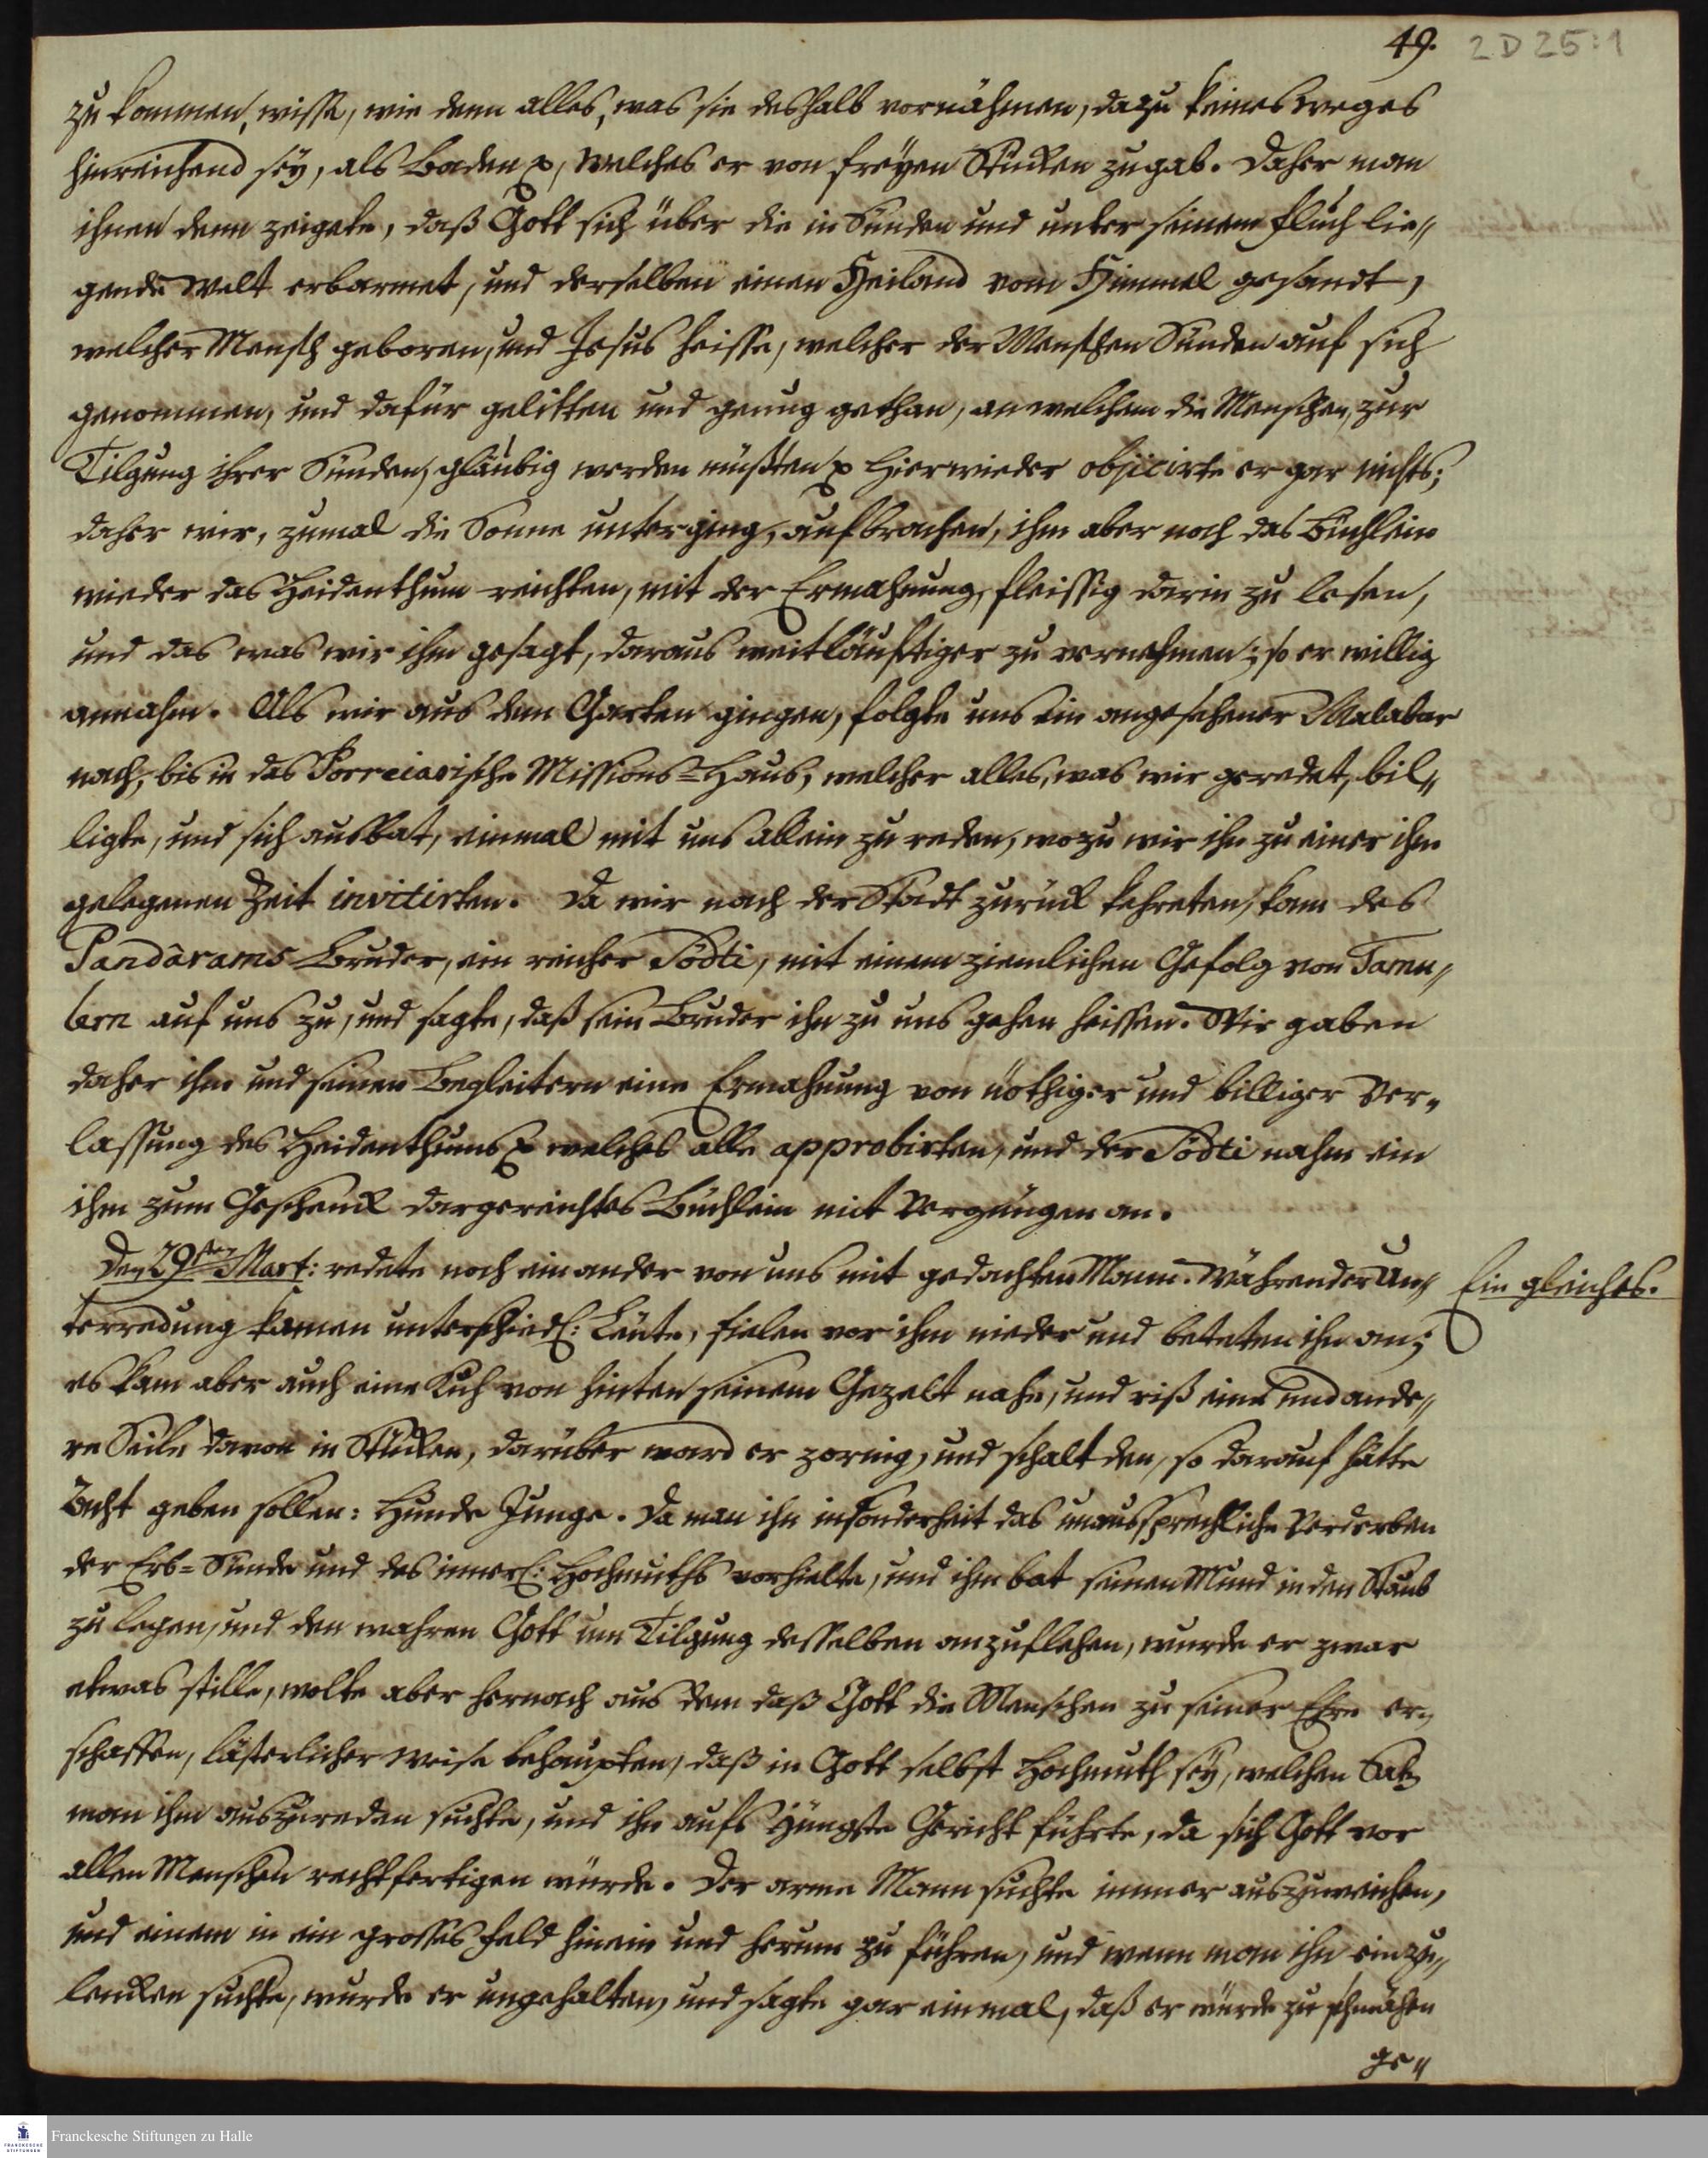 49. 2 D 25:1
zu kommen, wisse, wie denn alles, was sie deshalb vornähmen, dazu keinesweges
hinreichend sey, als Baden p, welches er von freyen Stücken zugab. Daher man
ihnen denn zeigete, daß Gott sich über die in Sünden und unter seinem Fluch lie„
gende Welt erbarmet, und derselben einen Heiland vom Himmel gesandt,
welcher Mensch geboren, und Jesus heisse, welcher der Menschen Sünden auf sich
genommen, und dafür gelitten und genug gethan, an welchem die Menschen, zur
Tilgung ihrer Sünden, gläubig werden müßten p Hierwieder objicirte er gar nichts;
daher wir, zumal die Sonne unterging, aufbrachen, ihm aber noch das Büchlein
wieder das Heidenthum reichten, mit der Ermahnung, fleissig darin zu lesen,
und das was wir ihm gesagt, daraus weitläuftiger zu vernehmen; so er willig
annahm. Als wir aus dem Garten gingen, folgte uns ein angesehener Malabar
nach, bis in das Porreiarische Missions-Haus, welcher alles, was wir geredet, bil„
ligte, und sich ausbat, einmal mit uns allein zu reden, wozu wir ihn zu einer ihm
gelegenen Zeit invitirten. Da wir nach der Stadt zurück kehreten, kam des
Pandârams Bruder, ein reicher Södti, mit einem ziemlichen Gefolg von Tamu„
lern auf uns zu, und sagte, daß sein Bruder ihn zu uns gehen heissen. Wir gaben
daher ihm und seinen Begleitern eine Ermahnung von nöthiger und billiger Ver„
lassung des Heidenthums p welches alle approbirten, und der Södti nahm ein
ihm zum Geschenck dargereichtes Büchlein mit Vergnügen an.
Den 29sten Mart: redete noch ein ander von uns mit gedachten Mann. Während der Un„
Ein gleiches.
terredung kamen unterschiedl: Leute, fielen vor ihm nieder und beteten ihn an;
es kam aber auch eine Kuh von hinten seinem Gezelt nahe, und riß eine und ande„
re Seile davon in Stücken, darüber ward er zornig, und schalt den, so darauf hätte
Acht geben sollen: Hunde Junge. Da man ihn insonderheit das unaussprechliche Verderben
der Erb-Sünde und des innerl: Hochmuths vorhielte, und ihm bat seinen Mund in den Staub
zu legen, und den wahren Gott um Tilgung desselben anzuflehen, wurde er zwar
etwas stille, wolte aber hernach aus dem daß Gott die Menschen zu seiner Ehre er„
schaffen, lästerlicher Weise behaupten, daß in Gott selbst Hochmuth sey, welchen Satz
man ihm auszureden suchte, und ihn aufs Jüngste Gericht führte, da sich Gott vor
allen Menschen rechtfertigen würde. Der arme Mann suchte immer auszuweichen,
und einem in ein grosses Feld hinein und herum zu führen, und wenn man ihn einzu„
lencken suchte, wurde er ungehalten, und sagte gar einmal, daß er würde zu schmähen
ge„
Franckesche Stiftungen zu Halle